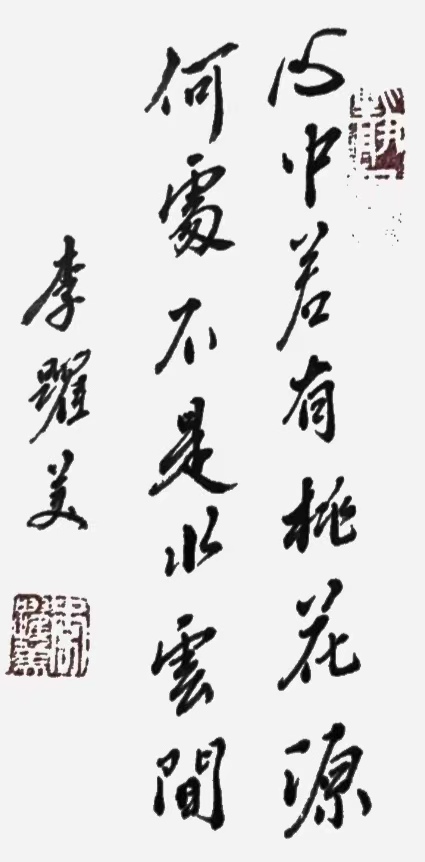 心中若有桃花源
何處不是水雲間
李躍美